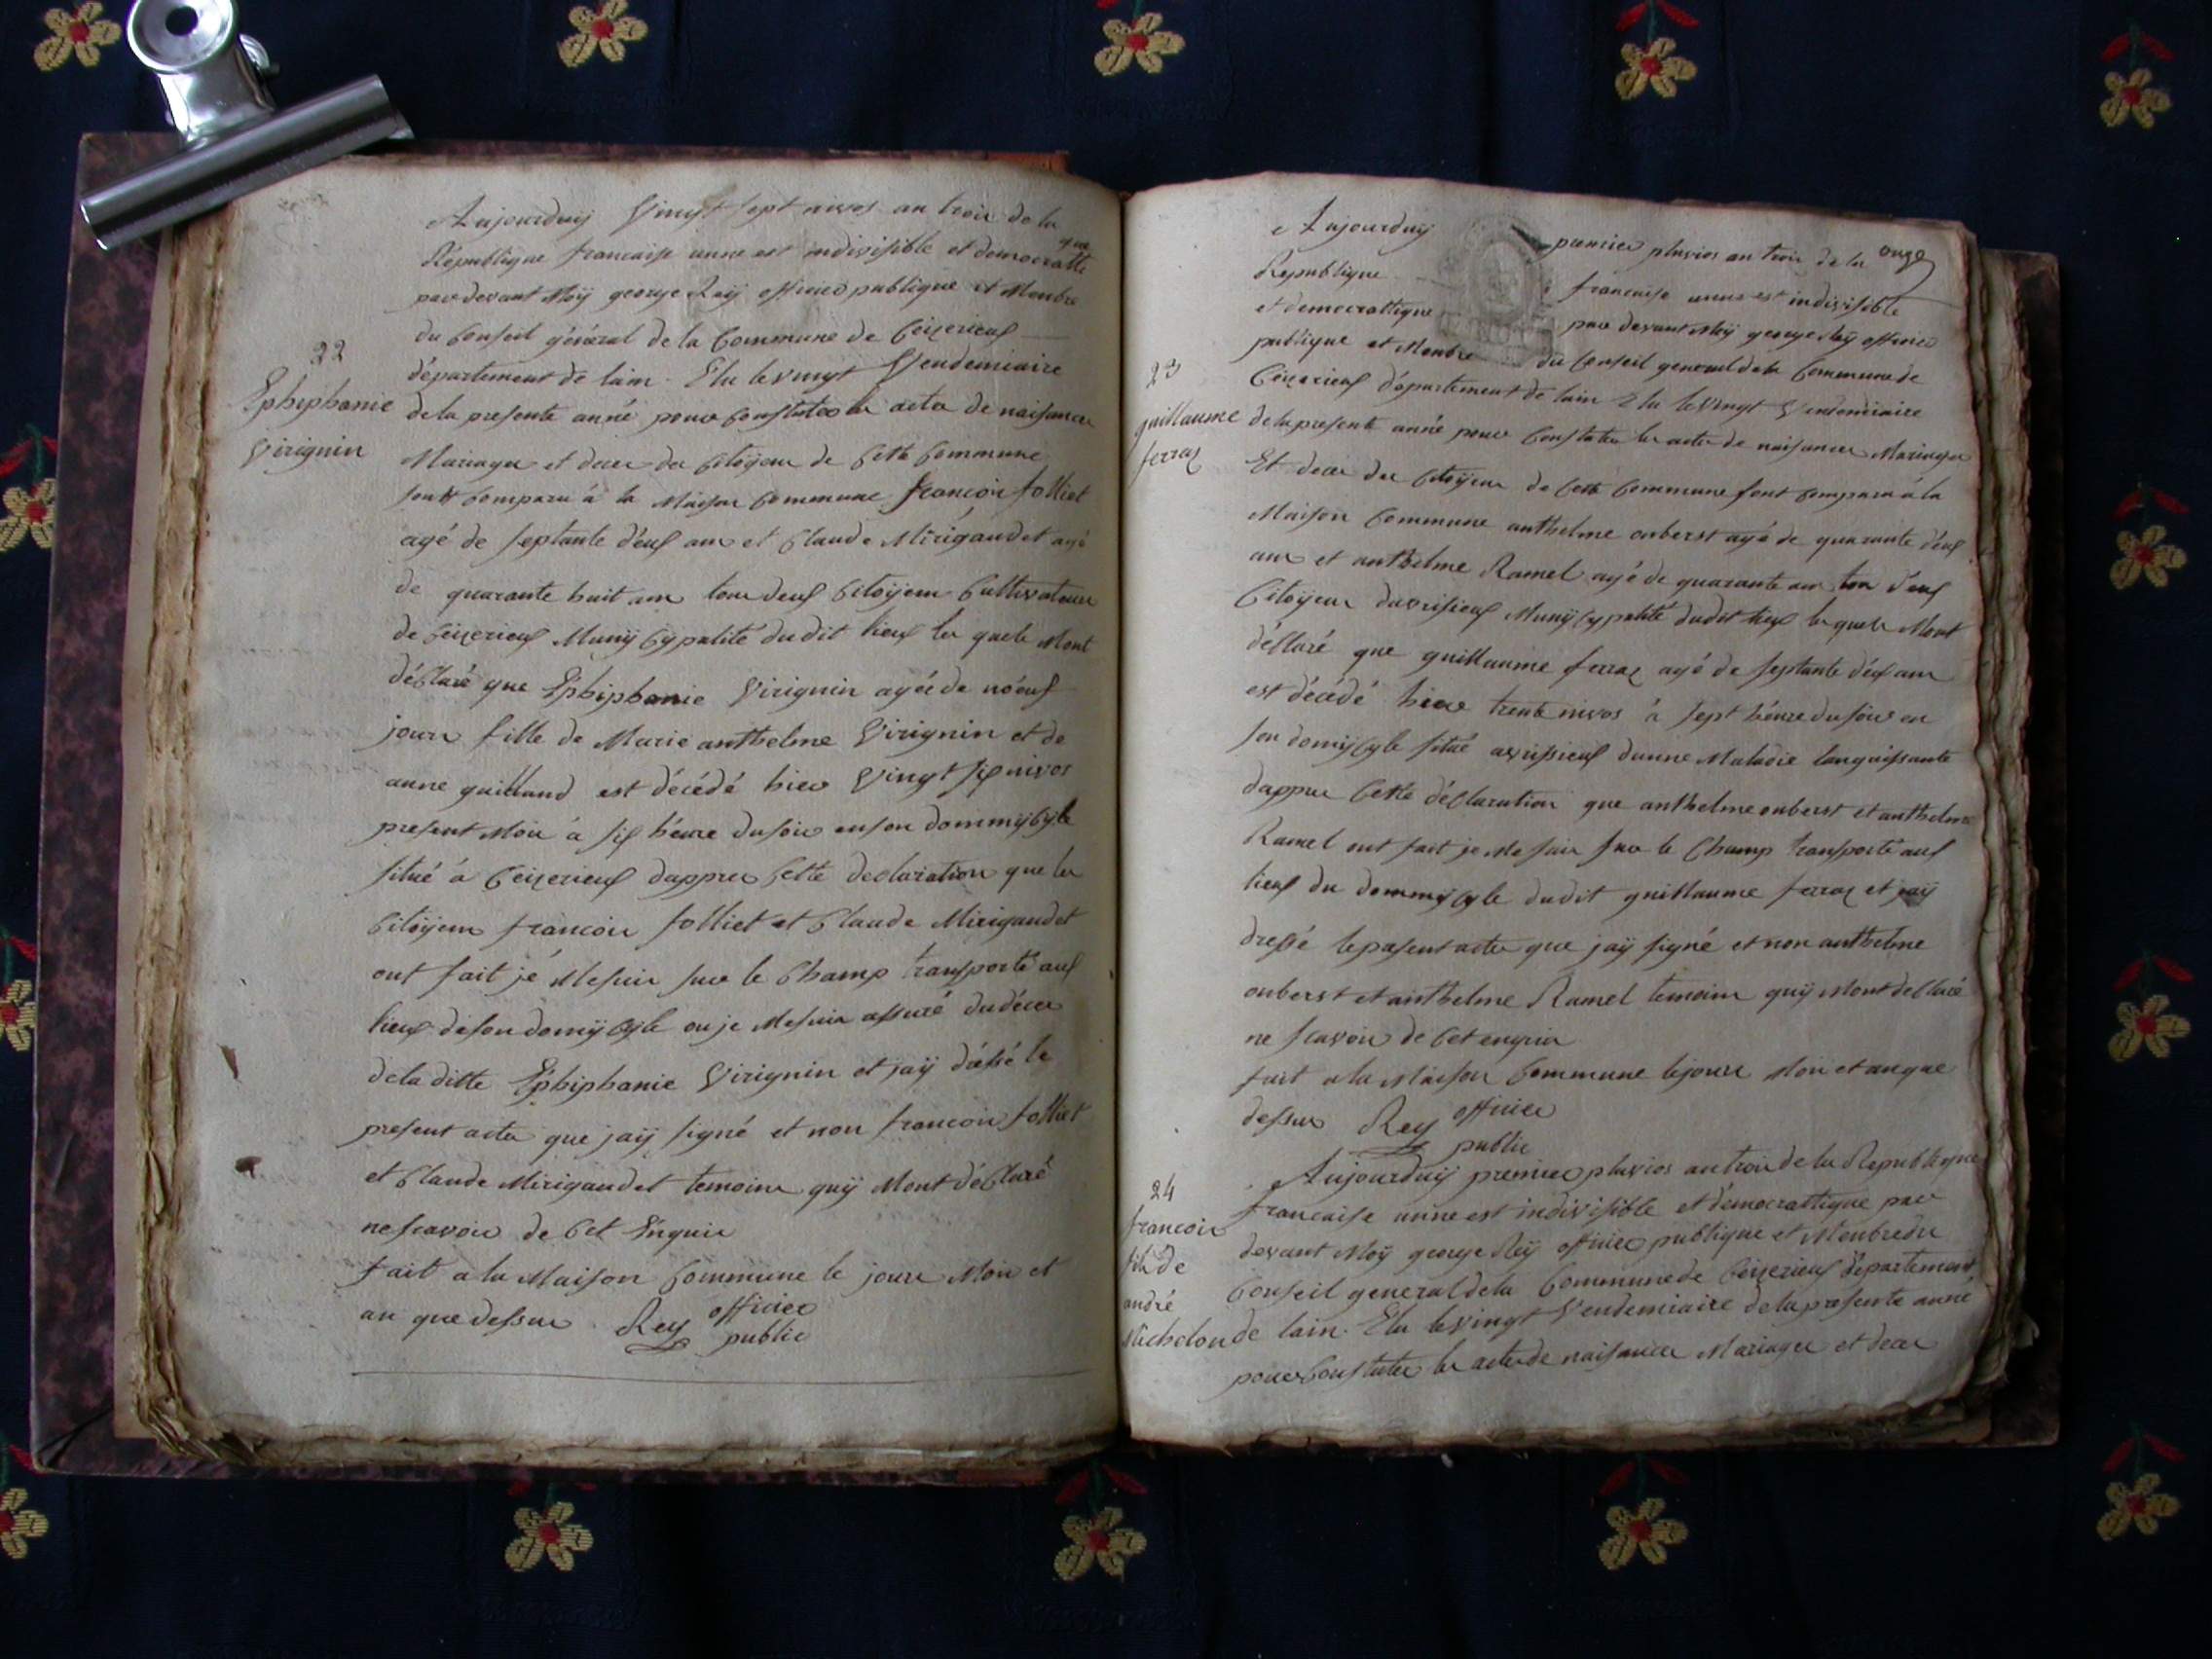 Aujourduÿ Vingt sept nivos an trois de la
République francaise unne est indivisible et democrattique
par devant Moÿ george Reÿ officier publique et Menbre
du Conseil géneral de la Commune de Ceizerieux
département de lain. Elu le vingt Vendemiaire
22
Ephiphanie
Virignin
de la presente anné pour Constater les actes de naisances
Mariages et deces des Citoÿens de Cette Commune
sont Comparu à la Maison Commune francois folliet
agé de septante deux ans et Claude Mirigaudet agé
de quarante huit ans tous deux Citoÿens Cultivateurs
de Ceizerieux Munÿcÿpalité du dit lieux les quels Mont
déclaré que Ephiphanie Virignin agée de nœuf
jours fille de Marie anthelme Virignin et de
anne guilland est décédé hier Vingt six nivos
present Mois à six héure du soir en son dommÿcÿle
situé à Ceizerieux dappres Cette declaration que les
Citoÿens francois folliet et Claude Mirigaudet
ont fait jé Me suis sur le Champ transporté aux
lieux de son domÿcÿle ou je Me suis assuré du déces
de la ditte Ephiphanie Virignin et jaÿ dréssé le
present actes que jaÿ signé et non francois folliet
et Claude Mirigaudet temoins quÿ Mont déClaré
ne scavoir de Cet Enquis
fait a la Maison Commune le jours Mois et
an que dessus Rey officier
public
onze
Aujourduÿ premier pluvios an trois de la
Republique francaise unne est indivisible
et democrattique par devant Moÿ george Reÿ officier
publique et Menbre du Conseil general de la Commune de
23
guillaume
ferraz
Ceizerieux département de lain Elu le vingt Vendemiaire
de la presente anné pour Constater les actes de naisances Mariages
Et deces des Citoÿens de Cette Commune sont Comparu à la
Maison Commune anthelme onberst agé de quarante déux
ans et anthelme Ramel agé de quarante ans tous deux
Citoÿens Munÿcÿpalité dudit lieux les quels Mont
déClaré que guillaume ferraz agé de septante déux ans
est décédé hier trente nivos à sept héure du soir en
son domÿcÿle situé avrissieux dunne Maladie languissante
dappres Cette déClaration que anthelme onberst et anthelme
Ramel ont fait je Me suis sur le Champ transporté aux
lieux du dommÿcÿle dudit guillaume ferraz et jaÿ
dressé le present actes que jaÿ signé et non anthelme
onberst et anthelme Ramel temoins quÿ Mont déClaré
ne scavoir de Cet enquis
fait a la Maison Commune le jours Mois et an que
dessus Rey officier
public
24
francois
fils de
andré
Michelon
Aujourduÿ premier pluvios an trois de la Republique
francaise unne est indivisible et démocrattique par
devant Moÿ george Reÿ officier publique et Menbre du
Conseil general de la Commune de Ceizerieux département
de lain. Elu le vingt Vendemiaire de la presente anné
pour Constater les actes de naisances Mariages et deces